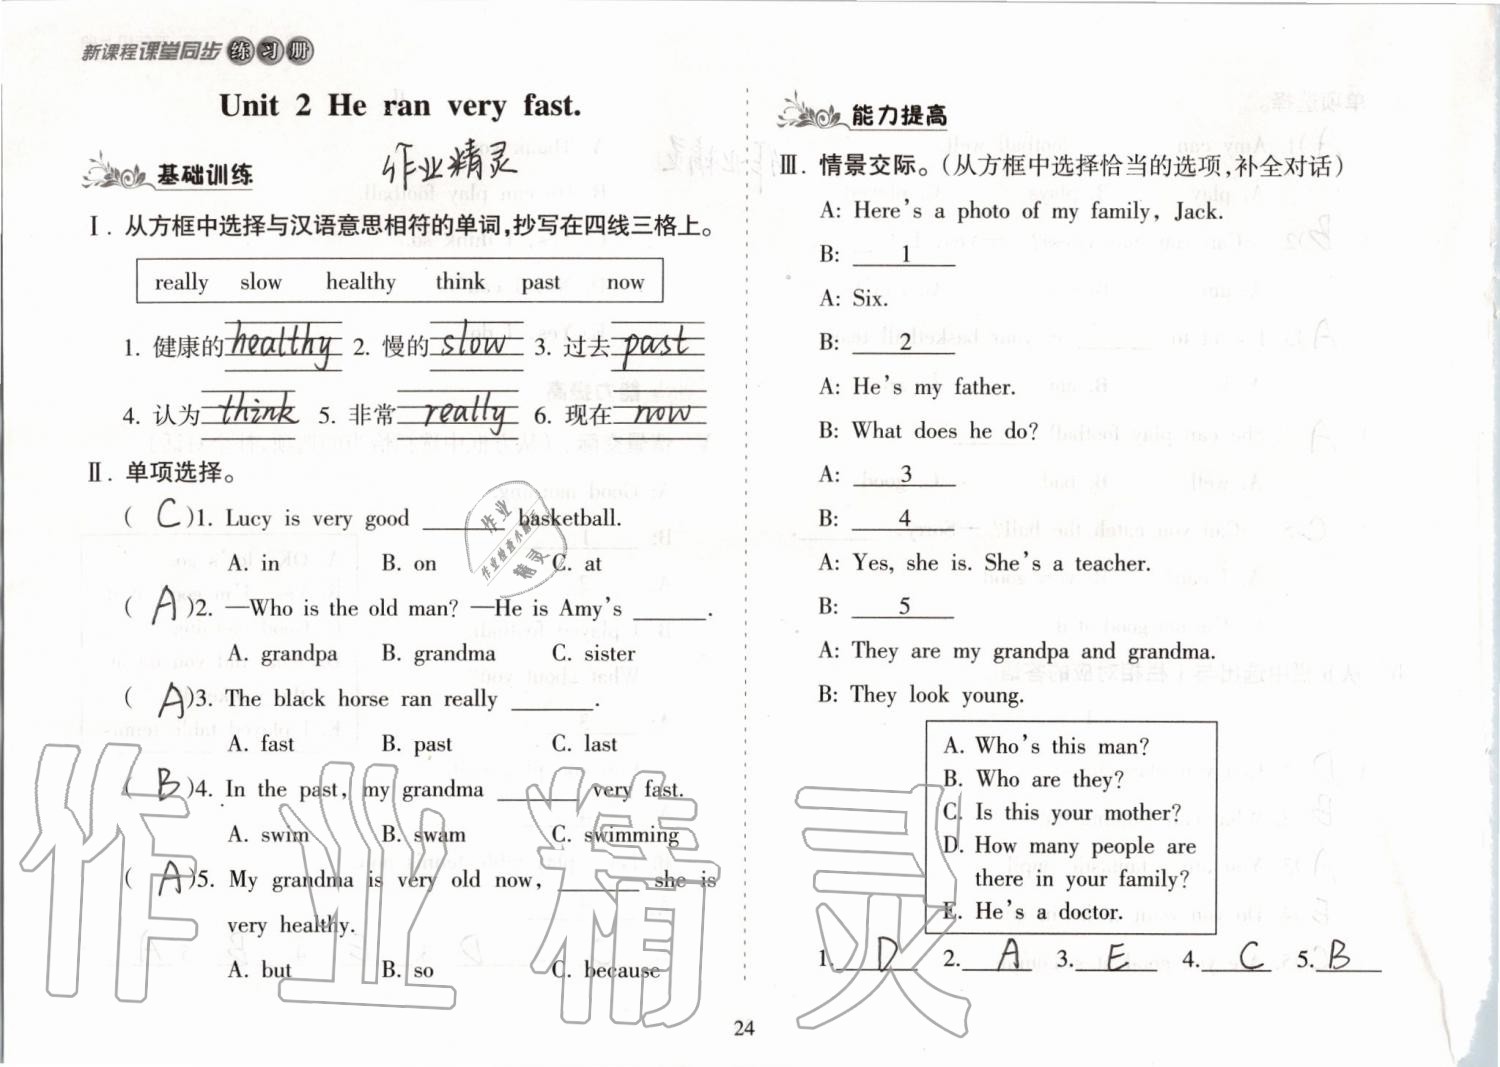 新课程课堂同步练习册
Unit 2 He ran very fast.
作业精灵
基础训练
Ⅰ. 从方框中选择与汉语意思相符的单词,抄写在四线三格上。
really slow healthy think past now
1. 健康的 healthy 2. 慢的 slow 3. 过去 past
4. 认为 think 5. 非常 really 6. 现在 now
Ⅱ. 单项选择。
( C )1. Lucy is very good ______ basketball.
A. in B. on C. at
( A )2. —Who is the old man? —He is Amy's ______.
A. grandpa B. grandma C. sister
( A )3. The black horse ran really ______.
A. fast B. past C. last
( B )4. In the past, my grandma ______ very fast.
A. swim B. swam C. swimming
( A )5. My grandma is very old now, ______ she is
very healthy.
A. but B. so C. because
作业
作业检查小助手
精灵
作业精灵
能力提高
Ⅲ. 情景交际。(从方框中选择恰当的选项,补全对话)
A: Here's a photo of my family, Jack.
B: 1
A: Six.
B: 2
A: He's my father.
B: What does he do?
A: 3
B: 4
A: Yes, she is. She's a teacher.
B: 5
A: They are my grandpa and grandma.
B: They look young.
A. Who's this man?
B. Who are they?
C. Is this your mother?
D. How many people are
there in your family?
E. He's a doctor.
1. D 2. A 3. E 4. C 5. B
24